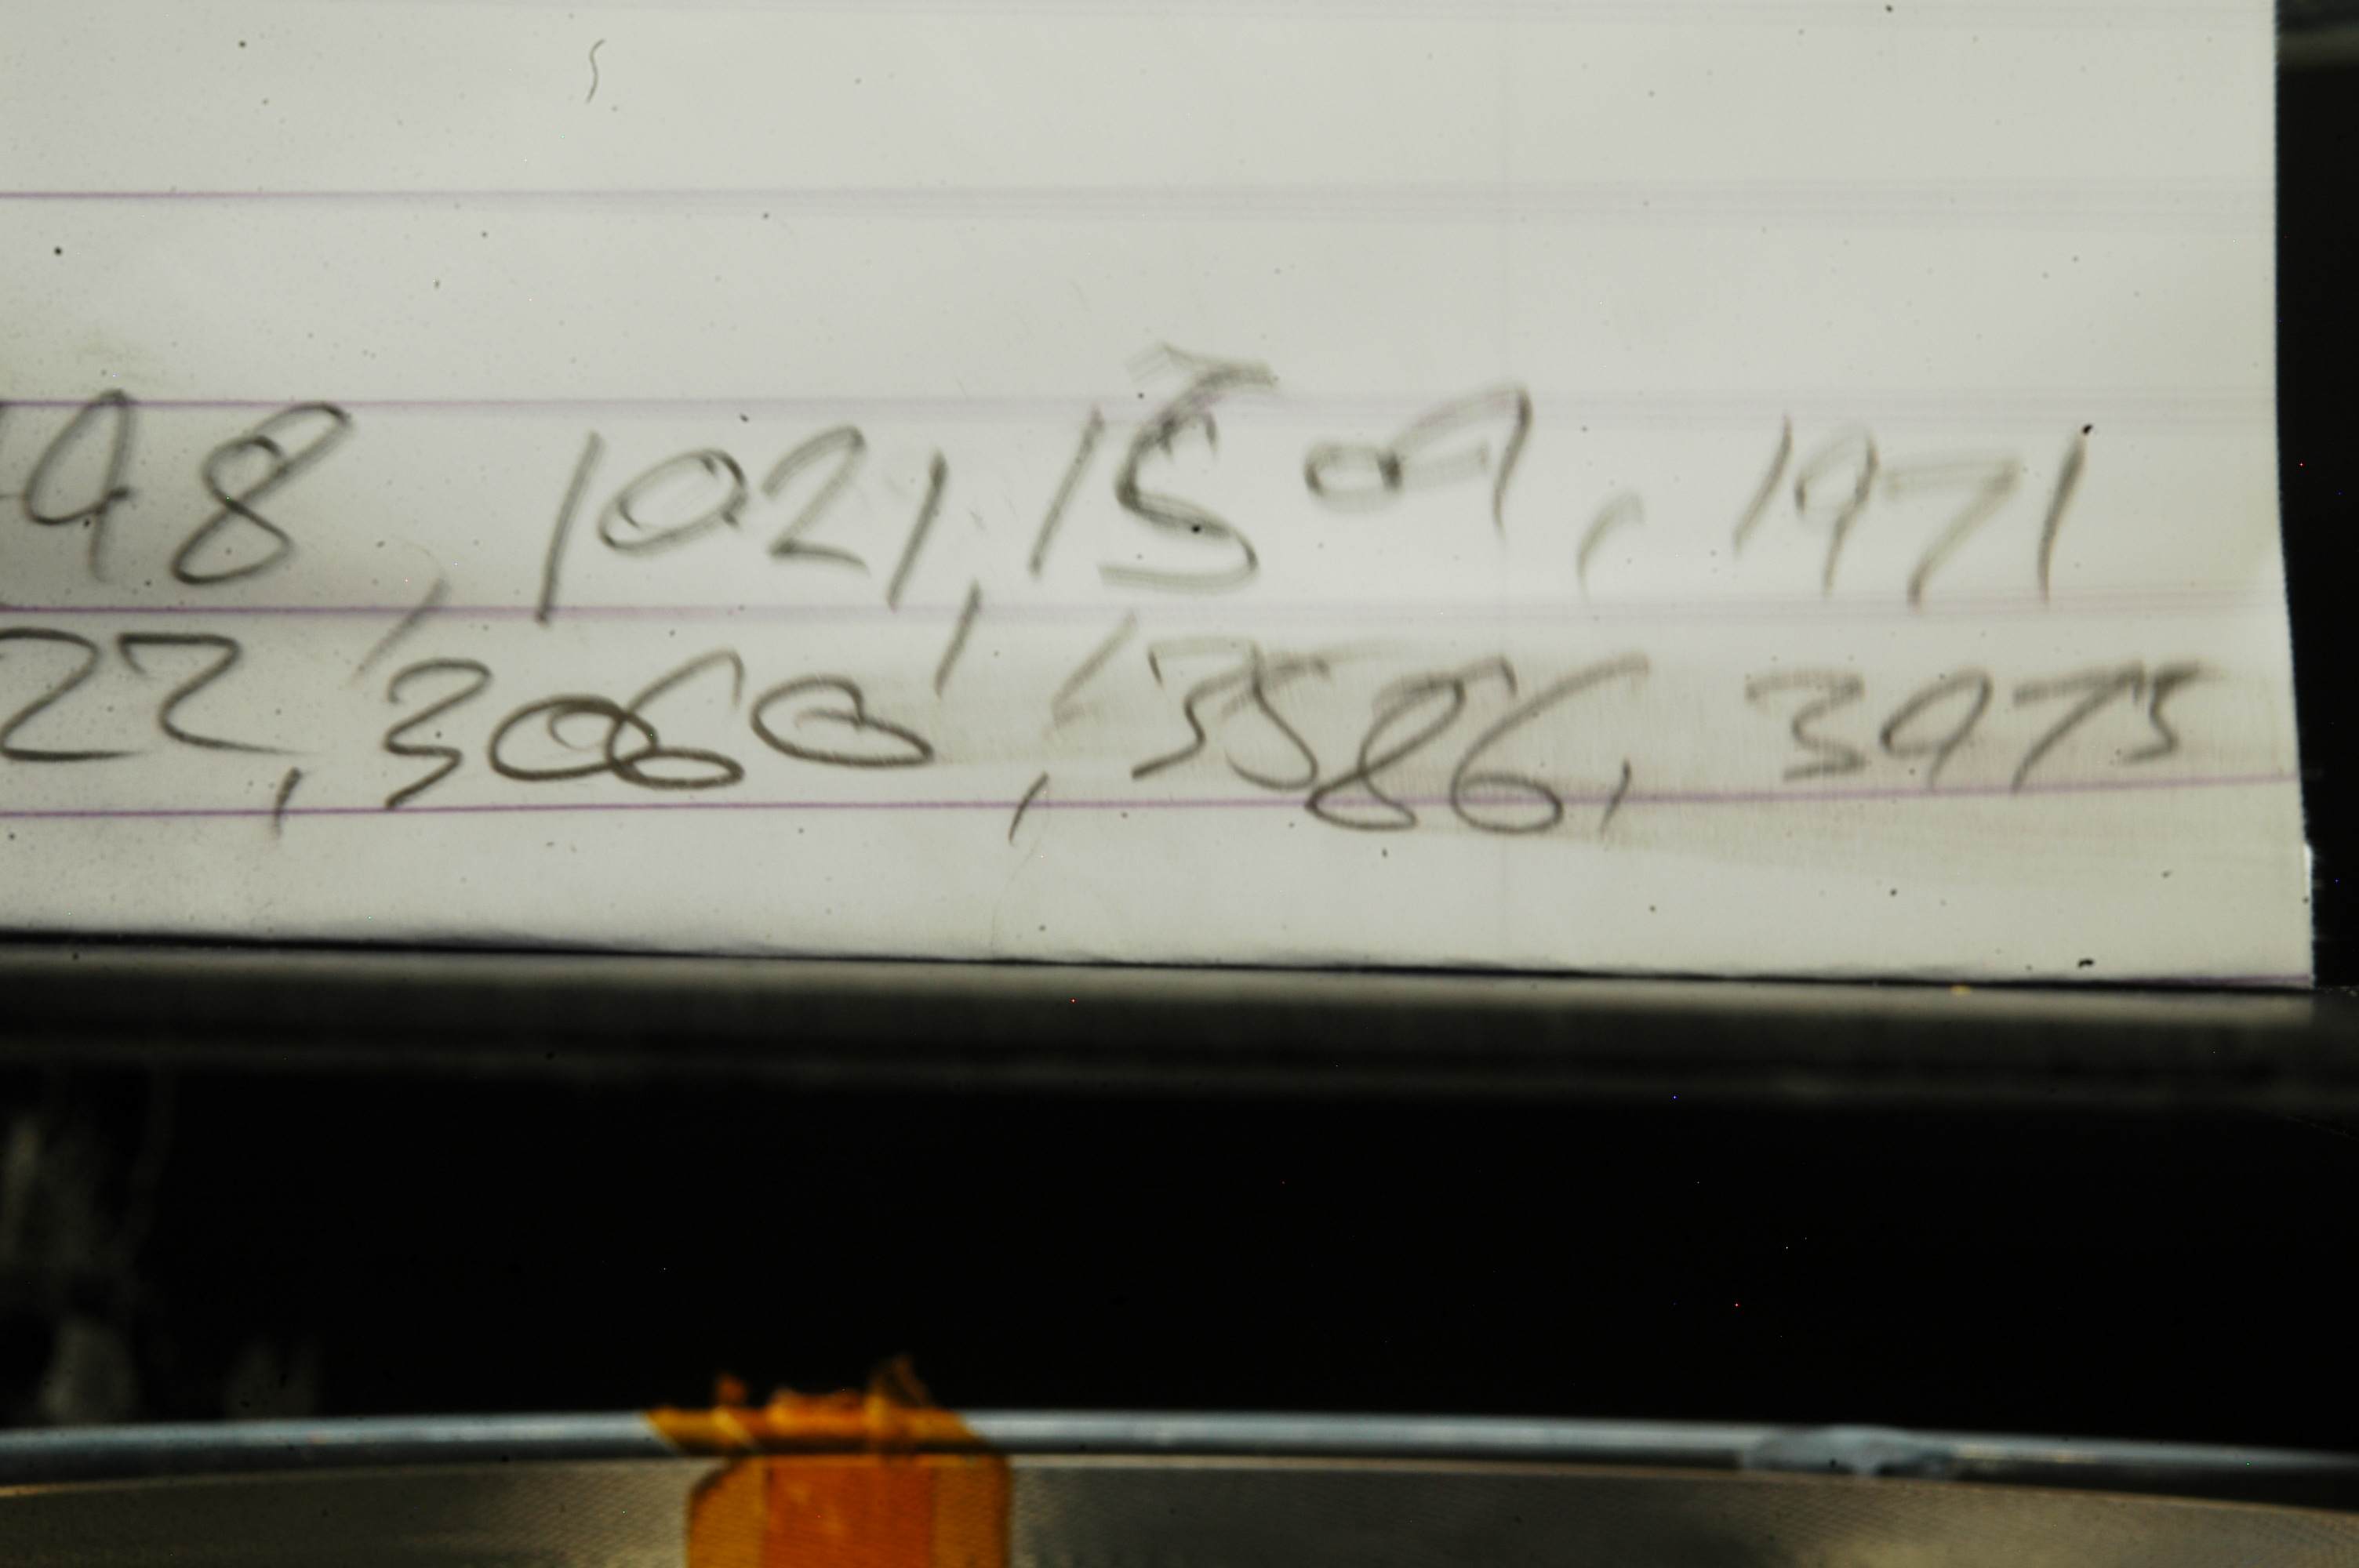 98, 1021, 1509, 1971
22, 3060, 3586, 3975